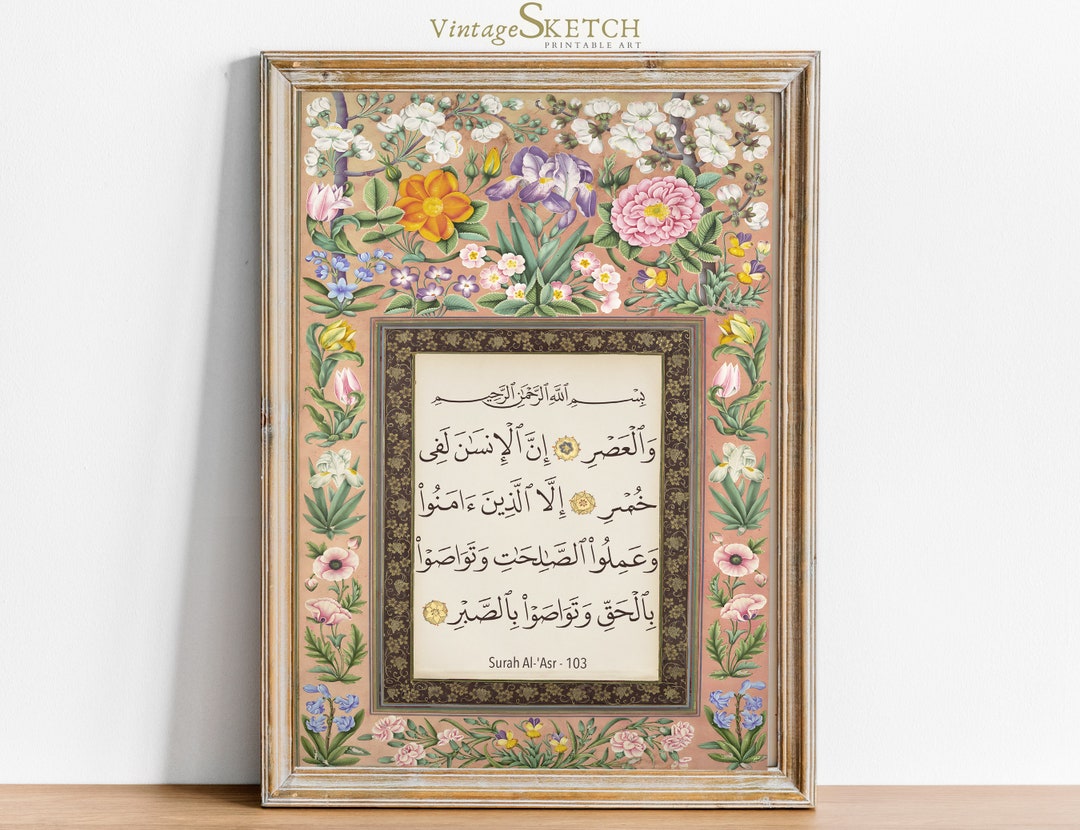 VintageSKETCH
PRINTABLE ART
بِسْمِ ٱللَّهِ ٱلرَّحْمَٰنِ ٱلرَّحِيمِ
وَٱلْعَصْرِ إِنَّ ٱلْإِنسَٰنَ لَفِى
خُسْرٍ إِلَّا ٱلَّذِينَ ءَامَنُوا۟
وَعَمِلُوا۟ ٱلصَّٰلِحَٰتِ وَتَوَاصَوْا۟
بِٱلْحَقِّ وَتَوَاصَوْا۟ بِٱلصَّبْرِ
Surah Al-'Asr - 103